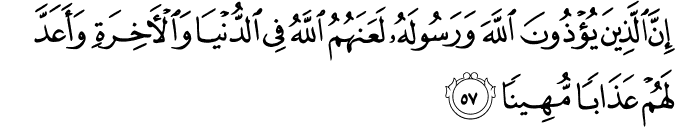 إِنَّ ٱلَّذِينَ يُؤْذُونَ ٱللَّهَ وَرَسُولَهُۥ لَعَنَهُمُ ٱللَّهُ فِى ٱلدُّنْيَا وَٱلْـَٔاخِرَةِ وَأَعَدَّ
لَهُمْ عَذَابًا مُّهِينًا ٥٧